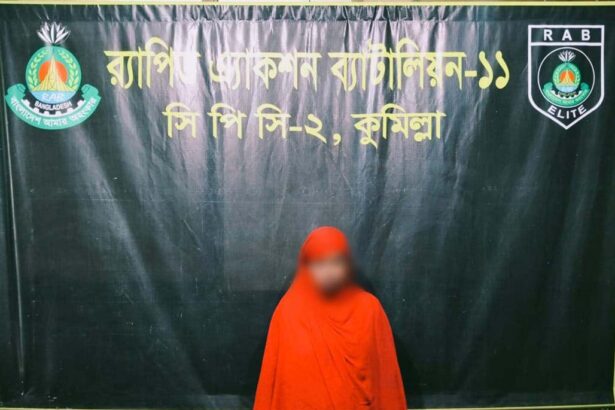 র‍্যাপিড এ্যাকশন ব্যাটালিয়ন-১১
সি পি সি-২, কুমিল্লা
RAB
BANGLADESH
বাংলাদেশ আমার অহংকার
RAB
ELITE